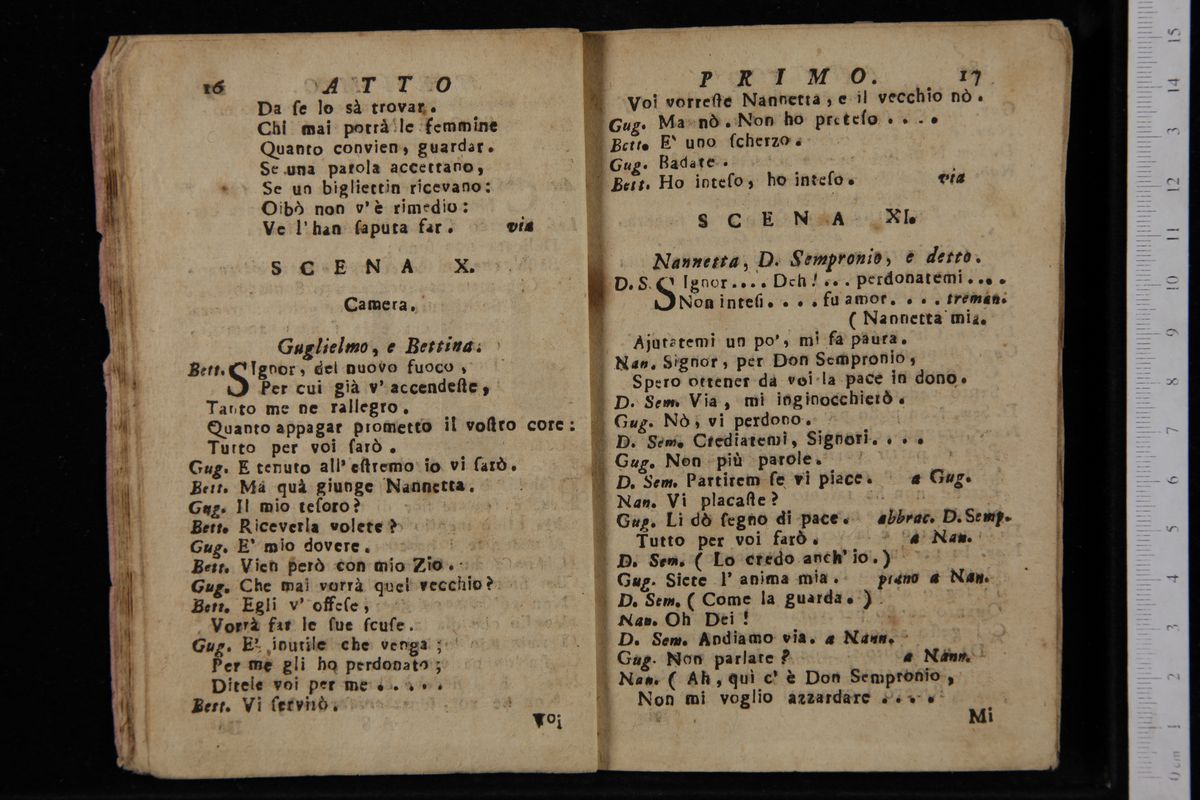 16 ATTO
Da ſe lo sà trovar.
Chi mai potrà le femmine
Quanto convien, guardar.
Se una parola accettano,
Se un bigliettin ricevano:
Oibò non v'è rimedio:
Ve l'han ſaputa far. via
SCENA X.
Camera.
Guglielmo, e Bettina.
Bett. SIgnor, del nuovo fuoco,
Per cui già v'accendeſte,
Tanto me ne rallegro.
Quanto appagar prometto il voſtro core:
Tutto per voi farò.
Gug. E tenuto all'eſtremo io vi ſarò.
Bett. Ma quà giunge Nannetta.
Gug. Il mio teſoro?
Bett. Riceverla volete?
Gug. E' mio dovere.
Bett. Vien però con mio Zio.
Gug. Che mai vorrà quel vecchio?
Bett. Egli v'offeſe,
Vorrà far le ſue ſcuſe.
Gug. E' inutile che venga;
Per me gli ho perdonato;
Ditele voi per me.....
Bett. Vi ſervirò.
Voi
PRIMO. 17
Voi vorreſte Nannetta, e il vecchio nò.
Gug. Ma nò. Non ho preteſo....
Bett. E' uno ſcherzo.
Gug. Badate.
Bett. Ho inteſo, ho inteſo. via
SCENA XI.
Nannetta, D. Sempronio, e detto.
D. S. SIgnor.... Deh!... perdonatemi....
Non inteſi.... fu amor.... treman.
( Nannetta mia.
Ajutatemi un po', mi fa paura.
Nan. Signor, per Don Sempronio,
Spero ottener da voi la pace in dono.
D. Sem. Via, mi inginocchierò.
Gug. Nò, vi perdono.
D. Sem. Crediatemi, Signori....
Gug. Non più parole.
D. Sem. Partirem ſe vi piace. a Gug.
Nan. Vi placaſte?
Gug. Li dò ſegno di pace. abbrac. D. Semp.
Tutto per voi farò. a Nan.
D. Sem. ( Lo credo anch'io. )
Gug. Siete l'anima mia. piano a Nan.
D. Sem. ( Come la guarda. )
Nan. Oh Dei!
D. Sem. Andiamo via. a Nann.
Gug. Non parlate? a Nann.
Nan. ( Ah, quì c'è Don Sempronio,
Non mi voglio azzardare....
Mi